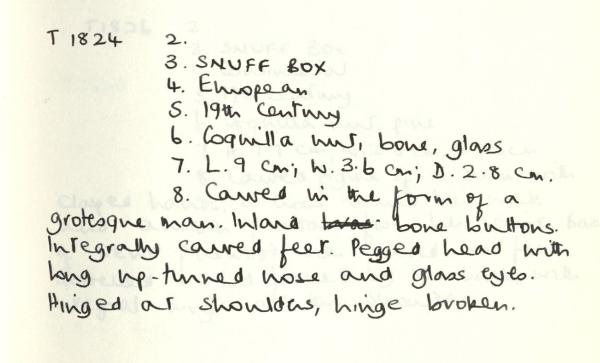 T 1824 2.
3. SNUFF BOX
4. European
5. 19th Century
6. Coquilla nut, bone, glass
7. L. 9 cm; W. 3.6 cm; D. 2.8 cm.
8. Carved in the form of a
grotesque man. Inland bone buttons.
Integrally carved feet. Pegged head with
long up-turned nose and glass eyes.
Hinged at shoulders, hinge broken.